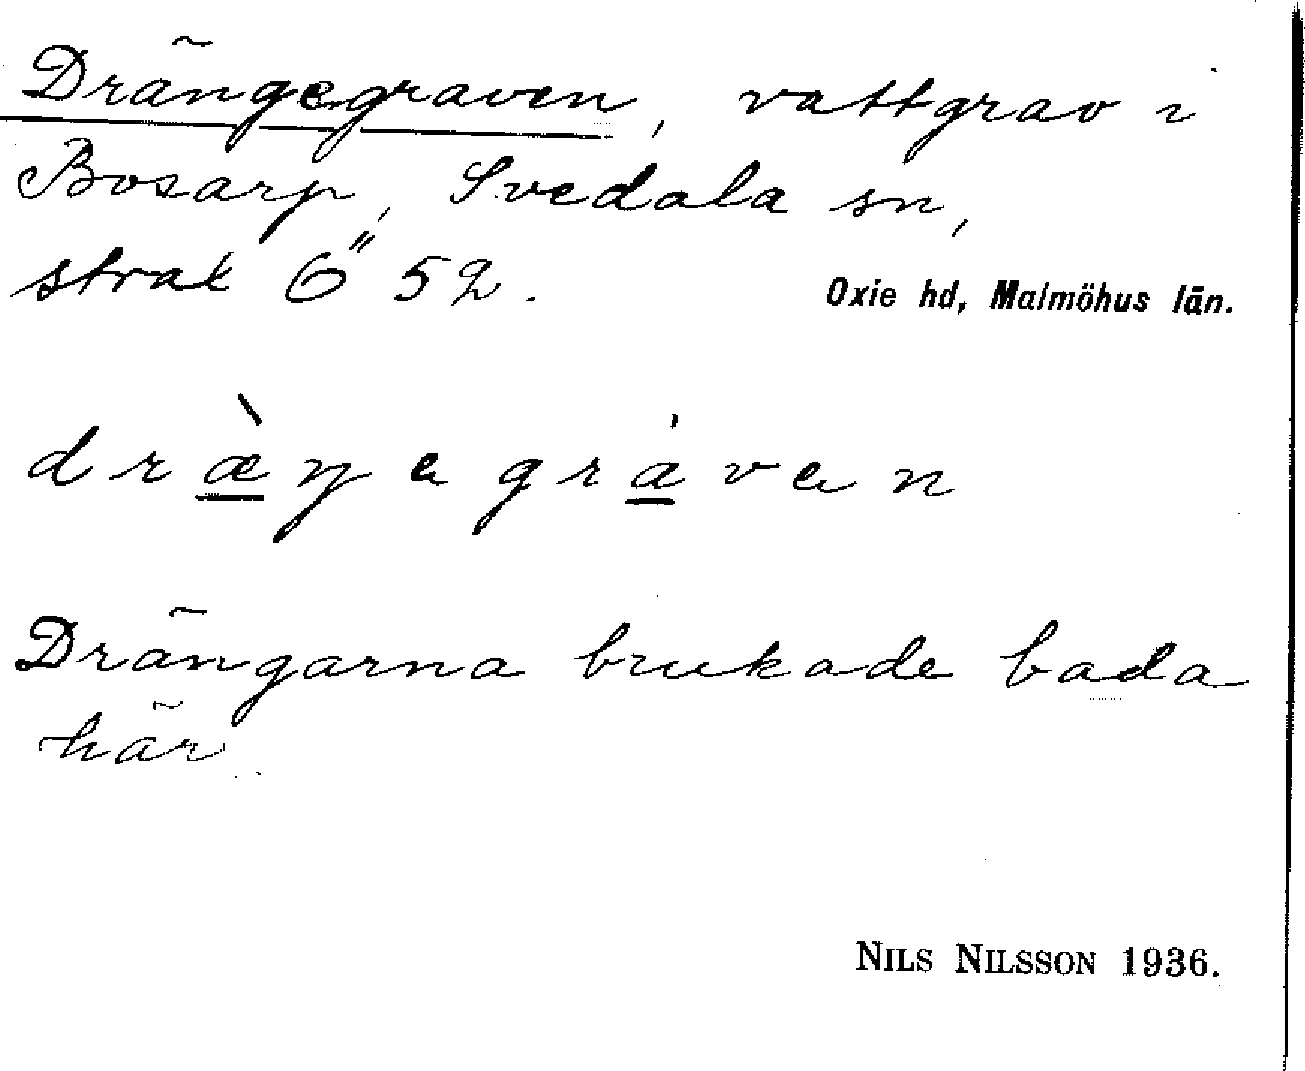 Drängegraven, vattgrav i
Bosarp, Svedala sn,
strax Ö 52.
Oxie hd, Malmöhus län.
dræ̀ŋegráven
Drängarna brukade bada
här.
NILS NILSSON 1936.